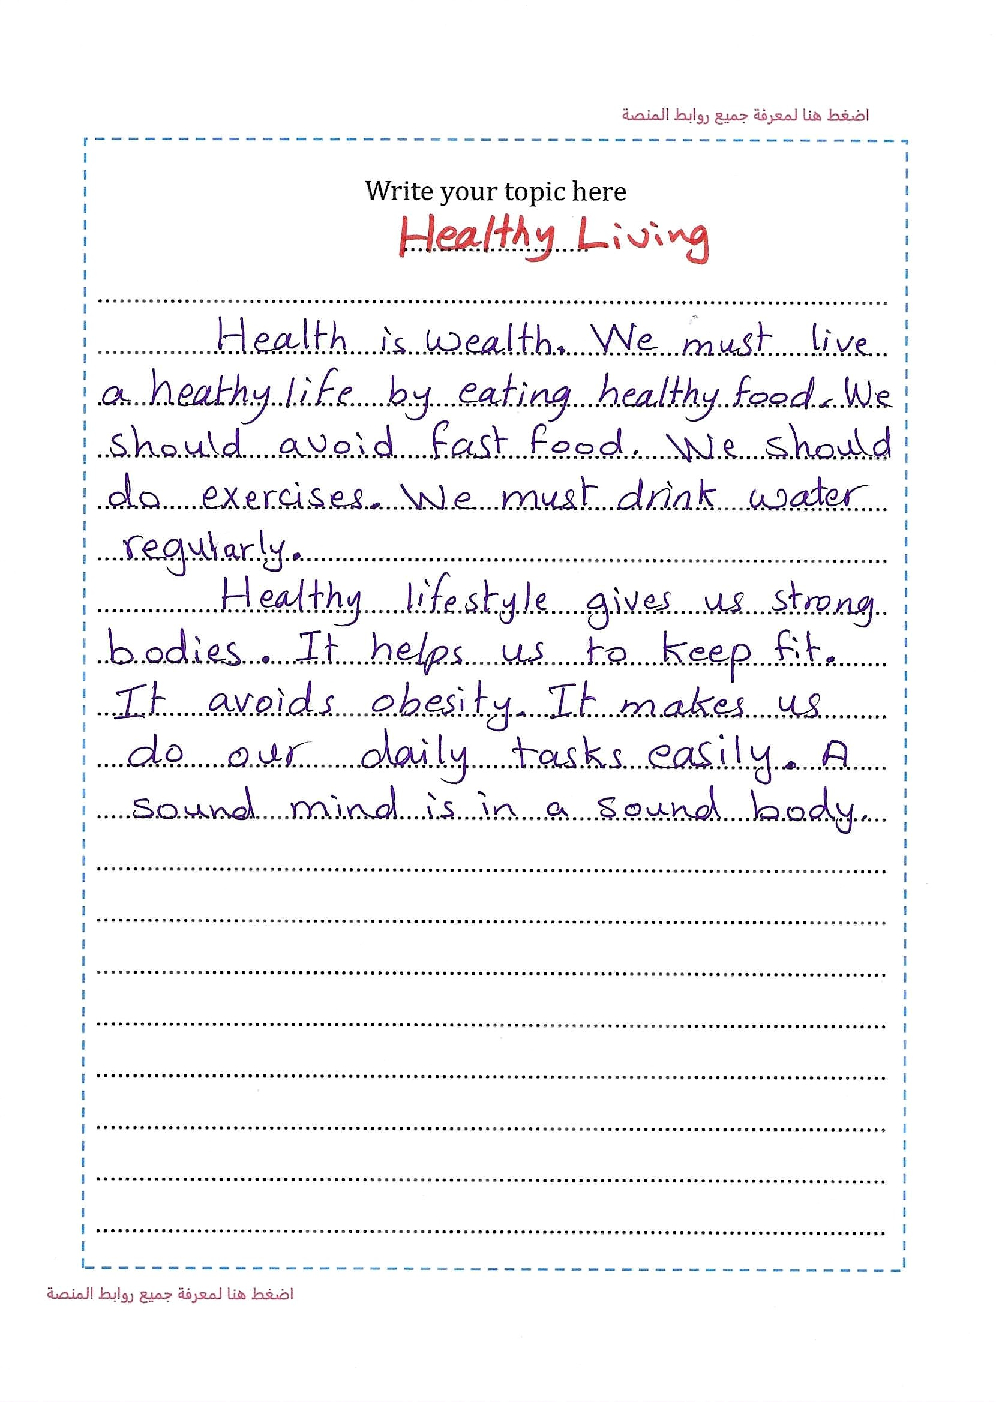 اضغط هنا لمعرفة جميع روابط المنصة
Write your topic here
Healthy Living
Health is wealth. We must live
a heathy life by eating healthy food. We
should avoid fast food. We should
do exercises. We must drink water
regularly.
Healthy lifestyle gives us strong
bodies. It helps us to keep fit.
It avoids obesity. It makes us
do our daily tasks easily. A
sound mind is in a sound body.
اضغط هنا لمعرفة جميع روابط المنصة